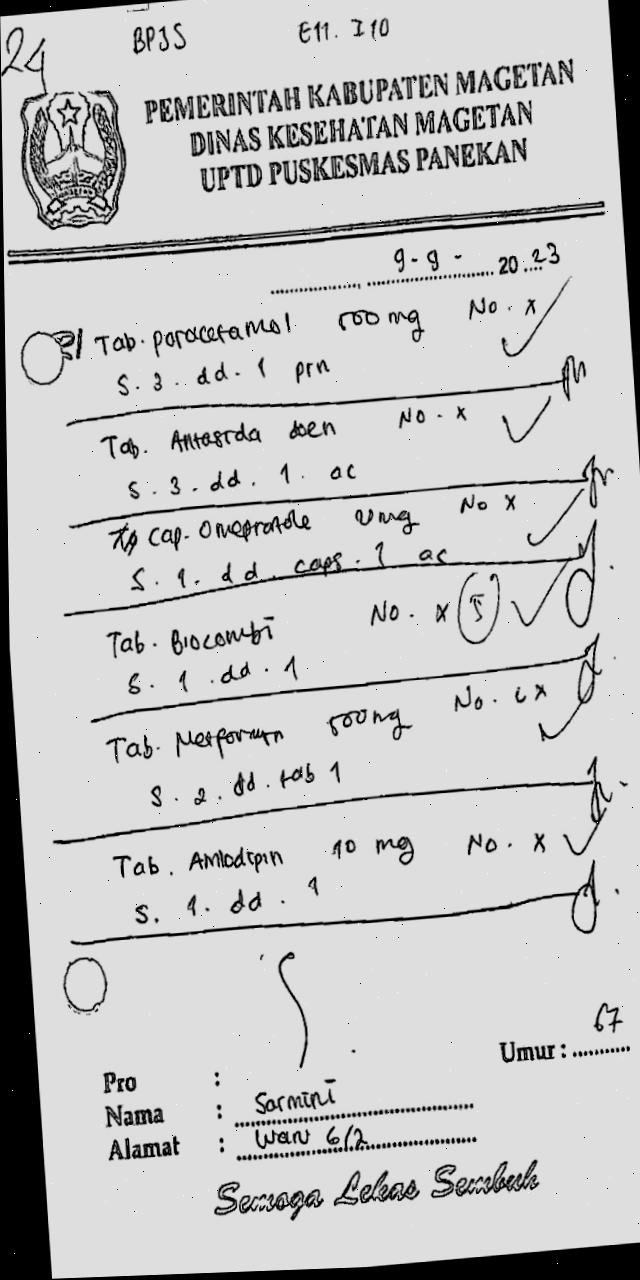 24 BPJS E11. I10
PEMERINTAH KABUPATEN MAGETAN
DINAS KESEHATAN MAGETAN
UPTD PUSKESMAS PANEKAN
9-9- 2023
R/ Tab. paracetamol 500 mg No. x
S. 3. dd. 1 prn
Tab. Antasida doen No. x
S. 3. dd. 1. ac
Cap. Omeprazole 20mg No x
S. 1. dd. caps. 1 ac
Tab. Biocombi No. x
S. 1. dd. 1
Tab. Metformin 500mg No. x
S. 2. dd. tab 1
Tab. Amlodipin 10 mg No. x
S. 1. dd. 1
Umur : 67
Pro :
Nama : Sarmini
Alamat : 6/2
Semoga Lekas Sembuh